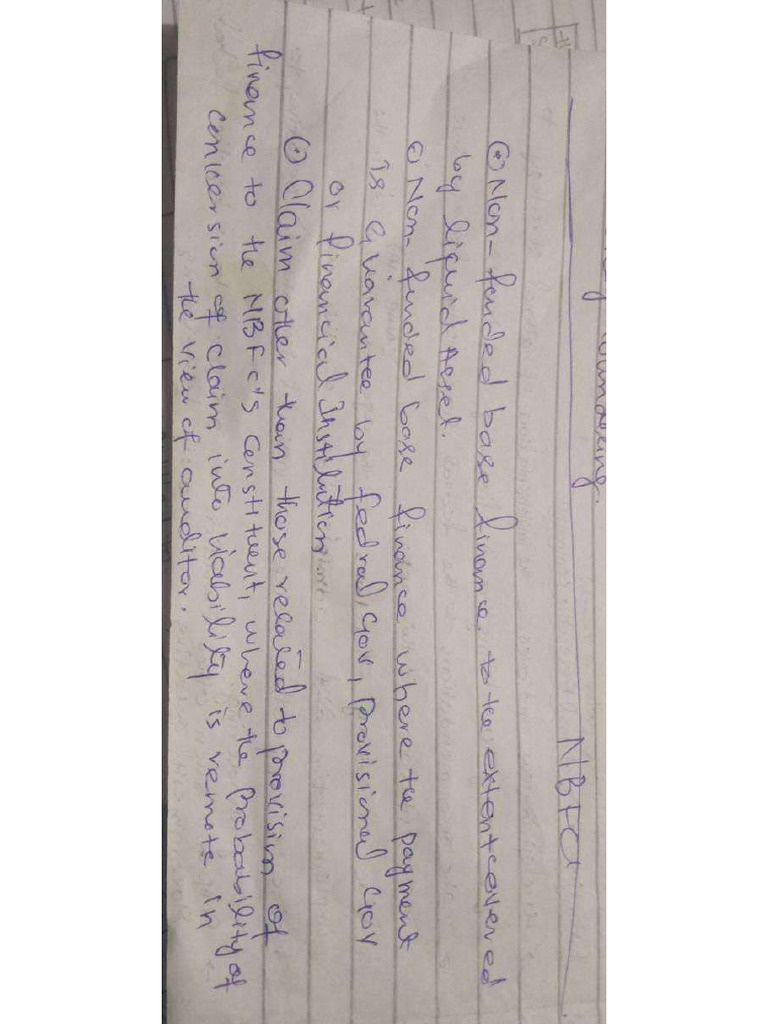 NBFC
⊙ Non-funded base finance, to the extent covered
by liquid Asset.
⊙ Non-funded base finance where the payment
is Guarantee by fedral, Gov, provisional Gov
or financial Institution
⊙ Claim other than those related to provision of
finance to the NBFC's constituent, where the probability of
conversion of claim into liability is remote in
the view of auditor.